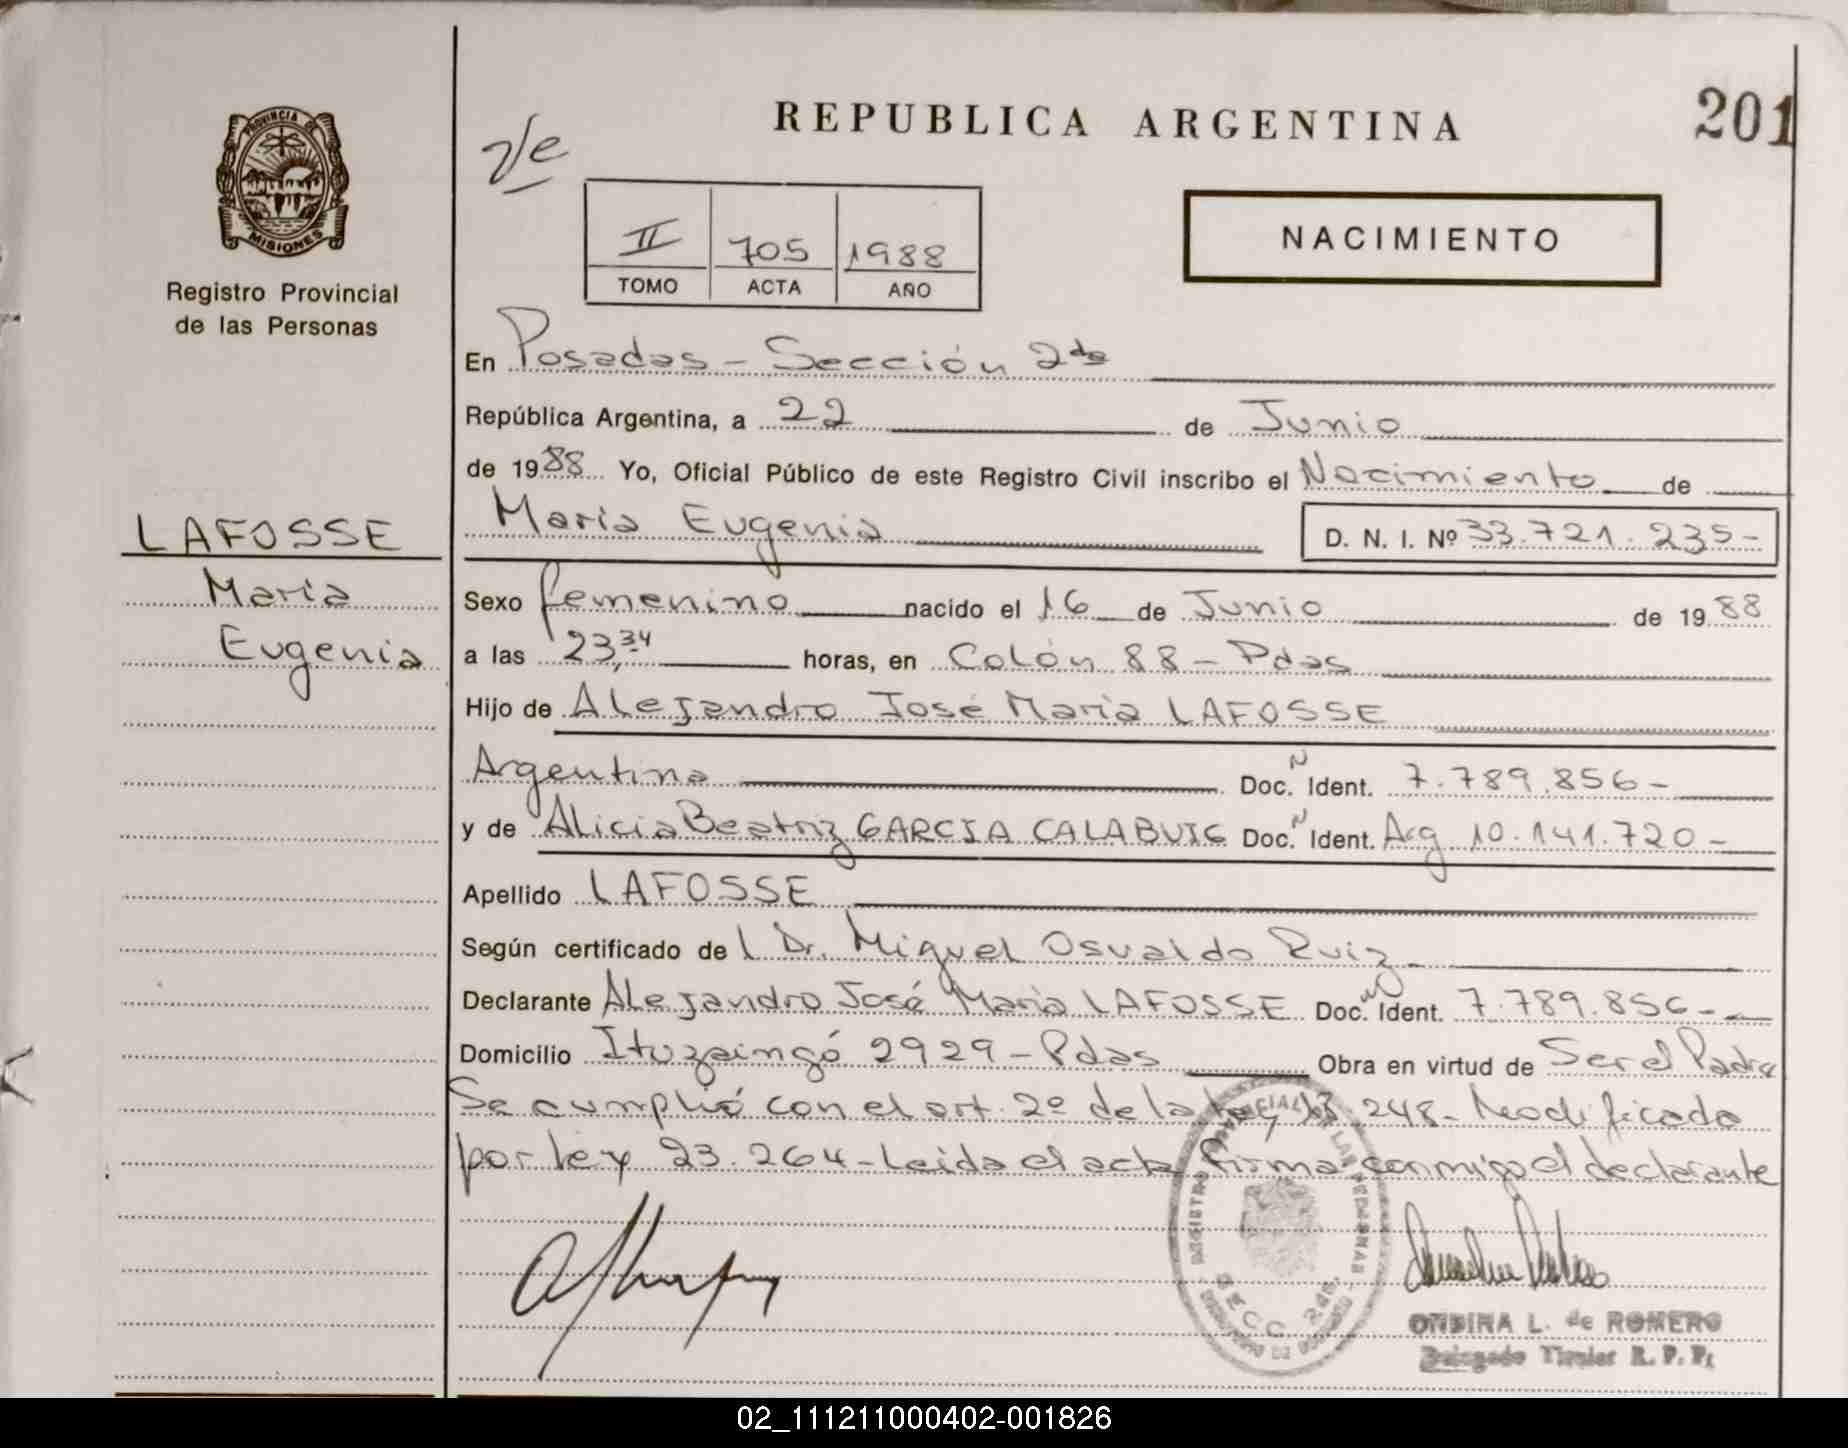 REPUBLICA ARGENTINA
201
PROVINCIA DE
MISIONES
Registro Provincial
de las Personas
II 705 1988
TOMO ACTA AÑO
NACIMIENTO
En Posadas - Sección 2da
República Argentina, a 22 de Junio
de 1988 Yo, Oficial Público de este Registro Civil inscribo el Nacimiento de
Maria Eugenia D. N. I. Nº 33.721.235-
LAFOSSE
Maria
Eugenia
Sexo femenino nacido el 16 de Junio de 1988
a las 23,34 horas, en Colón 88 - Pdas
Hijo de Alejandro José Maria LAFOSSE
Argentina Doc. N Ident. 7.789.856-
y de Alicia Beatriz GARCIA CALABUIG Doc. N Ident. Arg 10.141.720-
Apellido LAFOSSE
Según certificado de l Dr. Miguel Osvaldo Ruiz
Declarante Alejandro José Maria LAFOSSE Doc. Ident. 7.789.856-
Domicilio Ituzaingó 2929 - Pdas Obra en virtud de Ser el Padre
Se cumplió con el art. 2º de la ley 13.248- Modificada
por ley 23.264- Leida el acta firma conmigo el declarante
SECC. 2da.
ONDINA L. de ROMERO
Delegado Titular R. P. P.
02_111211000402-001826